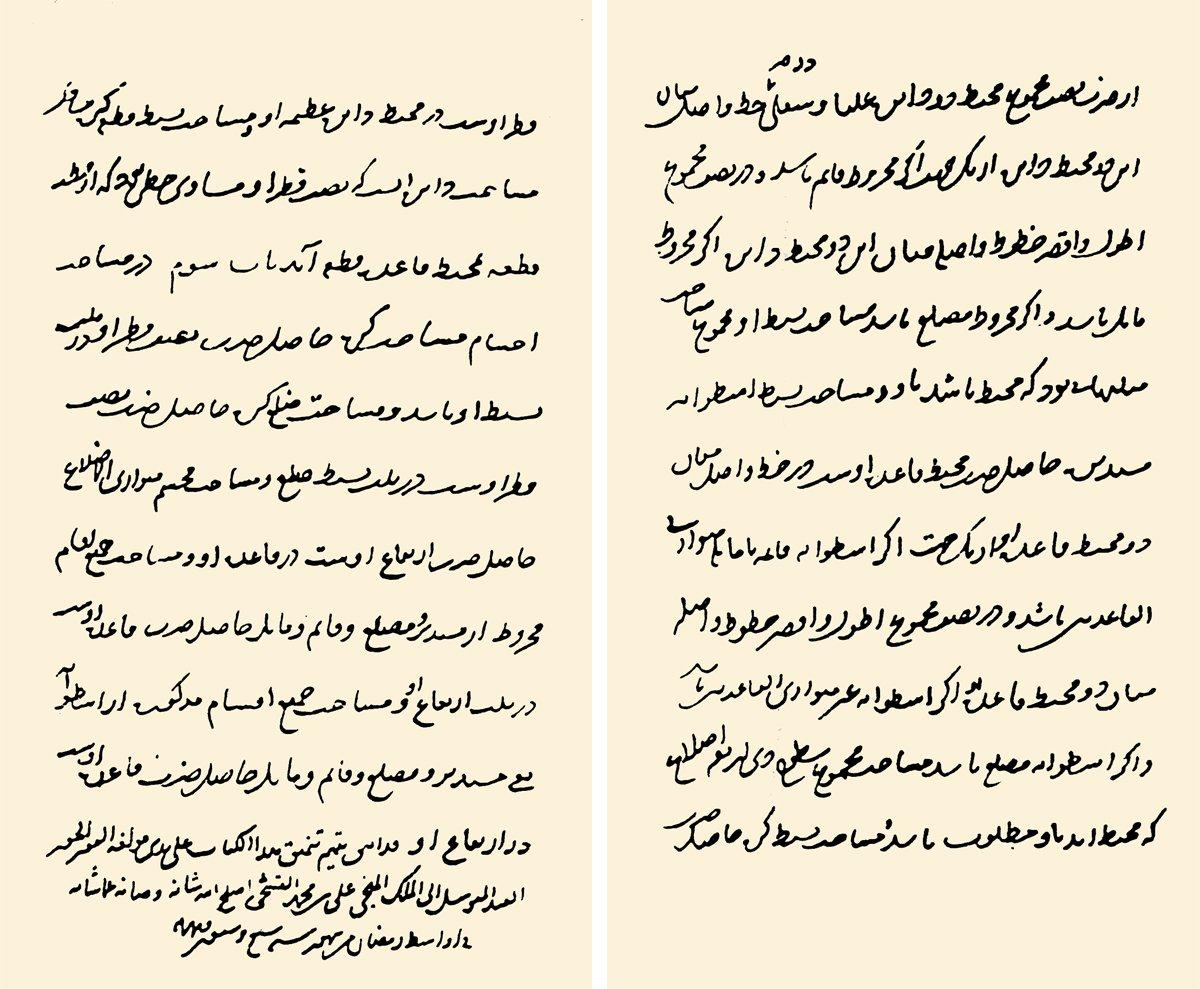 از ضرب نصف مجموع محیط دو دایره علیا و سفلی در خط واصل میان
این دو محیط دایره از یک جهت اگر مخروط قائم باشد و در نصف مجموع
اطول و اقصر خطوط واصل میان این دو محیط دایره اگر مخروط
مایل باشد و اگر مخروط مضلع باشد مساحت بسیط او مجموع مساحت
مثلثهایی بود که محیط باشد باو و مساحت بسیط اسطوانه
مستدیره حاصل ضرب محیط قاعده اوست در خط واصل میان
دو محیط قاعده او از یک جهت اگر اسطوانه قائمه یا مایله متوازی
القاعدتین باشد و در نصف مجموع اطول و اقصر خطوط واصله
میان دو محیط قاعده او اگر اسطوانه غیر متوازی القاعدتین باشد
و اگر اسطوانه مضلع باشد مساحت مجموع سطوح ذی اربعة اضلاع
که محیط اند باو مطلوب باشد و مساحت بسیط کره حاصل ضرب
قطر اوست در محیط دایره عظیمه او و مساحت بسیط قطعه کره
مساحت دایره ایست که نصف قطر او مساوی خطی بود که از قطب
قطعه بمحیط قاعده قطعه آید باب سوم در مساحت
اجسام مساحت کره حاصل ضرب نصف قطر او در ثلث
بسیط او باشد و مساحت ضلع کره حاصل ضرب نصف
قطر اوست در ثلث بسیط ضلع و مساحت مجسم متوازی الاضلاع
حاصل ضرب ارتفاع اوست در قاعده او و مساحت جمیع اقسام
مخروط از مستدیر و مضلع و قائم و مایل حاصل ضرب قاعده اوست
در ثلث ارتفاع او و مساحت جمیع اقسام مذکوره از اسطوانه
یعنی مستدیر و مضلع و قائم و مایل حاصل ضرب قاعده اوست
در ارتفاع او تنمیق هذا الکتاب علی یدی مؤلفه الفقیر الحقیر
العبد المتوسل الی الملک علی بن محمد القوشجی اصلح الله شانه و صانه عما شانه
اواسط رمضان سنه سبع